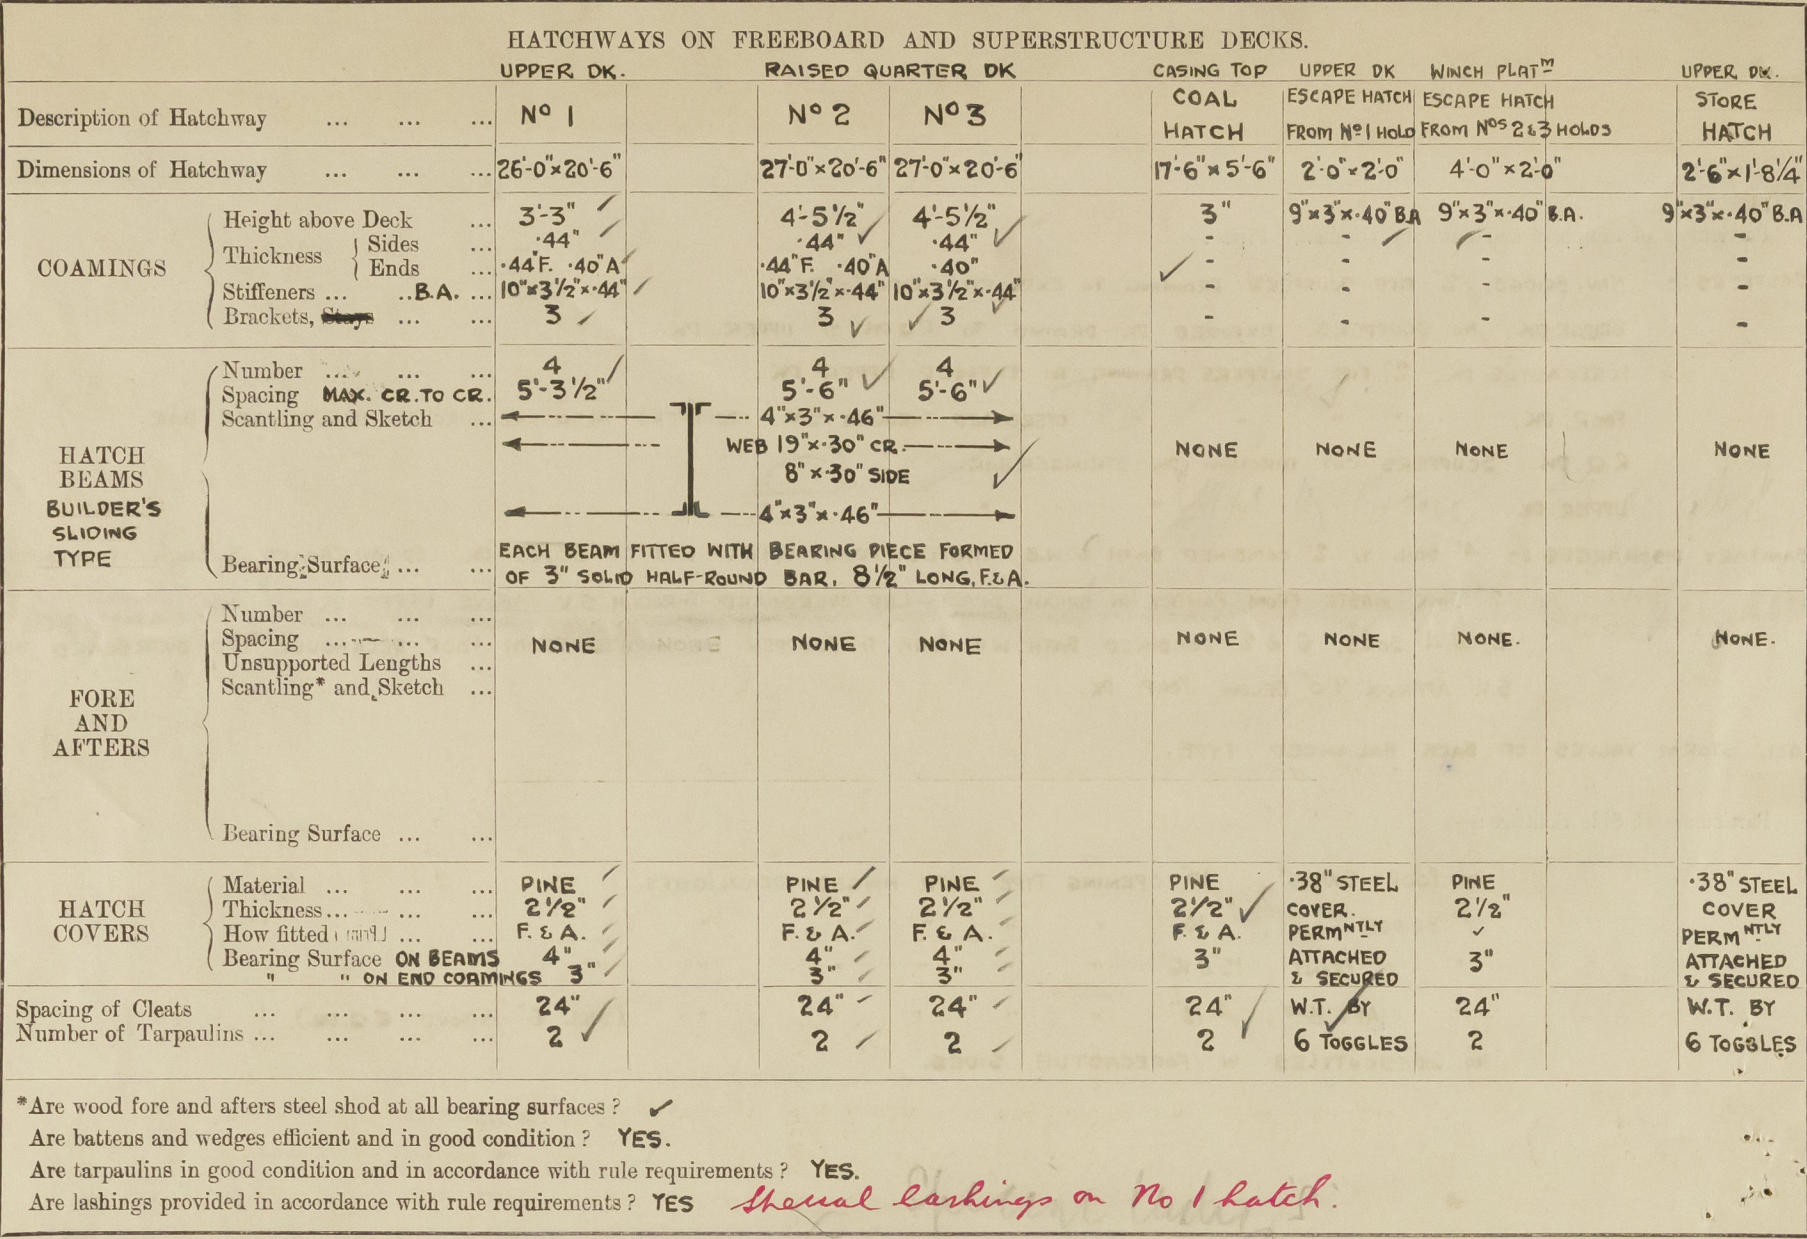 HATCHWAYS ON FREEBOARD AND SUPERSTRUCTURE DECKS.
UPPER DK. RAISED QUARTER DK CASING TOP UPPER DK WINCH PLATM UPPER DK.
Description of Hatchway ... ... ... No 1 No 2 No 3 COAL HATCH ESCAPE HATCH FROM No 1 HOLD ESCAPE HATCH FROM Nos 2 & 3 HOLDS STORE HATCH
Dimensions of Hatchway ... ... ... 26'-0"×20'-6" 27'-0"×20'-6" 27'-0"×20'-6" 17'-6"×5'-6" 2'-0"×2'-0" 4'-0"×2'-0" 2'-6"×1'-8¼"
COAMINGS
Height above Deck ... 3'-3" ✓ 4'-5½" ✓ 4'-5½" ✓ 3" 9"×3"×.40" B.A 9"×3"×.40" B.A. 9"×3"×.40" B.A
Thickness { Sides ... .44" ✓ .44" ✓ .44" ✓ - - - -
Ends ... .44"F. .40"A ✓ .44"F. .40"A .40" ✓ - - - -
Stiffeners ... ..B.A. ... 10"×3½"×.44" ✓ 10"×3½"×.44" 10"×3½"×.44" - - - -
Brackets, Stays ... ... 3 ✓ 3 ✓ ✓ 3 - - - -
HATCH BEAMS
BUILDER'S SLIDING TYPE
Number ... ... ... 4 ✓ 4 ✓ 4 ✓
Spacing MAX. CR. TO CR. 5'-3½" 5'-6" 5'-6"
Scantling and Sketch ... 4"×3"×.46"
WEB 19"×.30" CR.
8"×.30" SIDE ✓
4"×3"×.46"
NONE NONE NONE NONE
Bearing Surface ... ... EACH BEAM FITTED WITH BEARING PIECE FORMED
OF 3" SOLID HALF-ROUND BAR, 8½" LONG, F.& A.
FORE AND AFTERS
Number ... ... ...
Spacing ... ... ... NONE NONE NONE NONE NONE NONE. NONE.
Unsupported Lengths ...
Scantling* and Sketch ...
Bearing Surface ... ...
HATCH COVERS
Material ... ... ... PINE ✓ PINE ✓ PINE ✓ PINE .38" STEEL PINE .38" STEEL
Thickness ... ... ... 2½" ✓ 2½" ✓ 2½" ✓ 2½" ✓ COVER. 2½" COVER
How fitted ... ... F. & A. ✓ F. & A. ✓ F. & A. ✓ F. & A. PERMNTLY ✓ PERMNTLY
Bearing Surface ON BEAMS 4" 4" 4" 3" ATTACHED 3" ATTACHED
" " ON END COAMINGS 3" 3" 3" & SECURED & SECURED
Spacing of Cleats ... ... ... ... 24" 24" 24" 24" W.T. BY 24" W.T. BY
Number of Tarpaulins ... ... ... ... 2 ✓ 2 ✓ 2 ✓ 2 ✓ 6 TOGGLES 2 6 TOGGLES
*Are wood fore and afters steel shod at all bearing surfaces ? ✓
Are battens and wedges efficient and in good condition ? YES.
Are tarpaulins in good condition and in accordance with rule requirements ? YES.
Are lashings provided in accordance with rule requirements ? YES lashings on No 1 hatch.